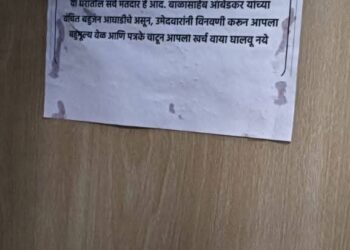 या घरातील सर्व मतदार हे आद. बाळासाहेब आंबेडकर यांच्या
वंचित बहुजन आघाडीचे असून, उमेदवारांनी विनवणी करुन आपला
बहुमूल्य वेळ आणि पत्रके वाटून आपला खर्च वाया घालवू नये